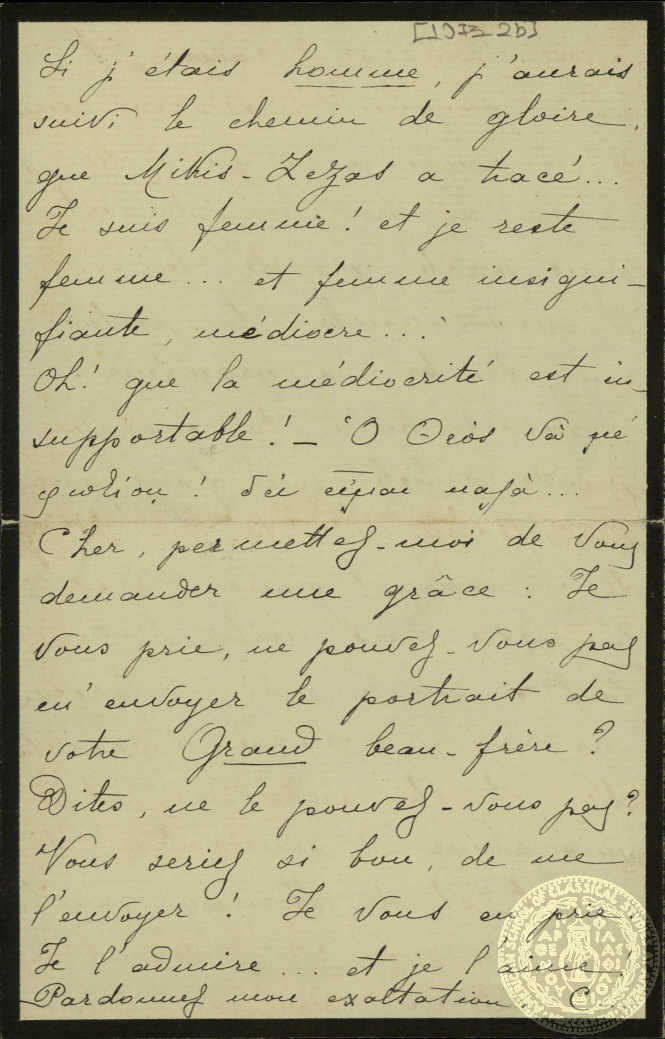 [10 2b]
Si j'étais homme, j'aurais
suivi le chemin de gloire,
que Mikis-Zezas a tracé...
Je suis femme! et je reste
femme... et femme insigni-
fiante, médiocre...
Oh! que la médiocrité est in-
supportable! - Ὁ Θεὸς νὰ μέ
φωτίσῃ! δὲν εἶμαι καλά...
Cher, permettez-moi de vous
demander une grâce: Je
vous prie, ne pouvez-vous pas
m'envoyer le portrait de
votre Grand beau-frère?
Dites, ne le pouvez-vous pas?
Vous seriez si bon, de me
l'envoyer! Je vous en prie.
Je l'admire... et je l'aime!
Pardonnez mon exaltation. C.